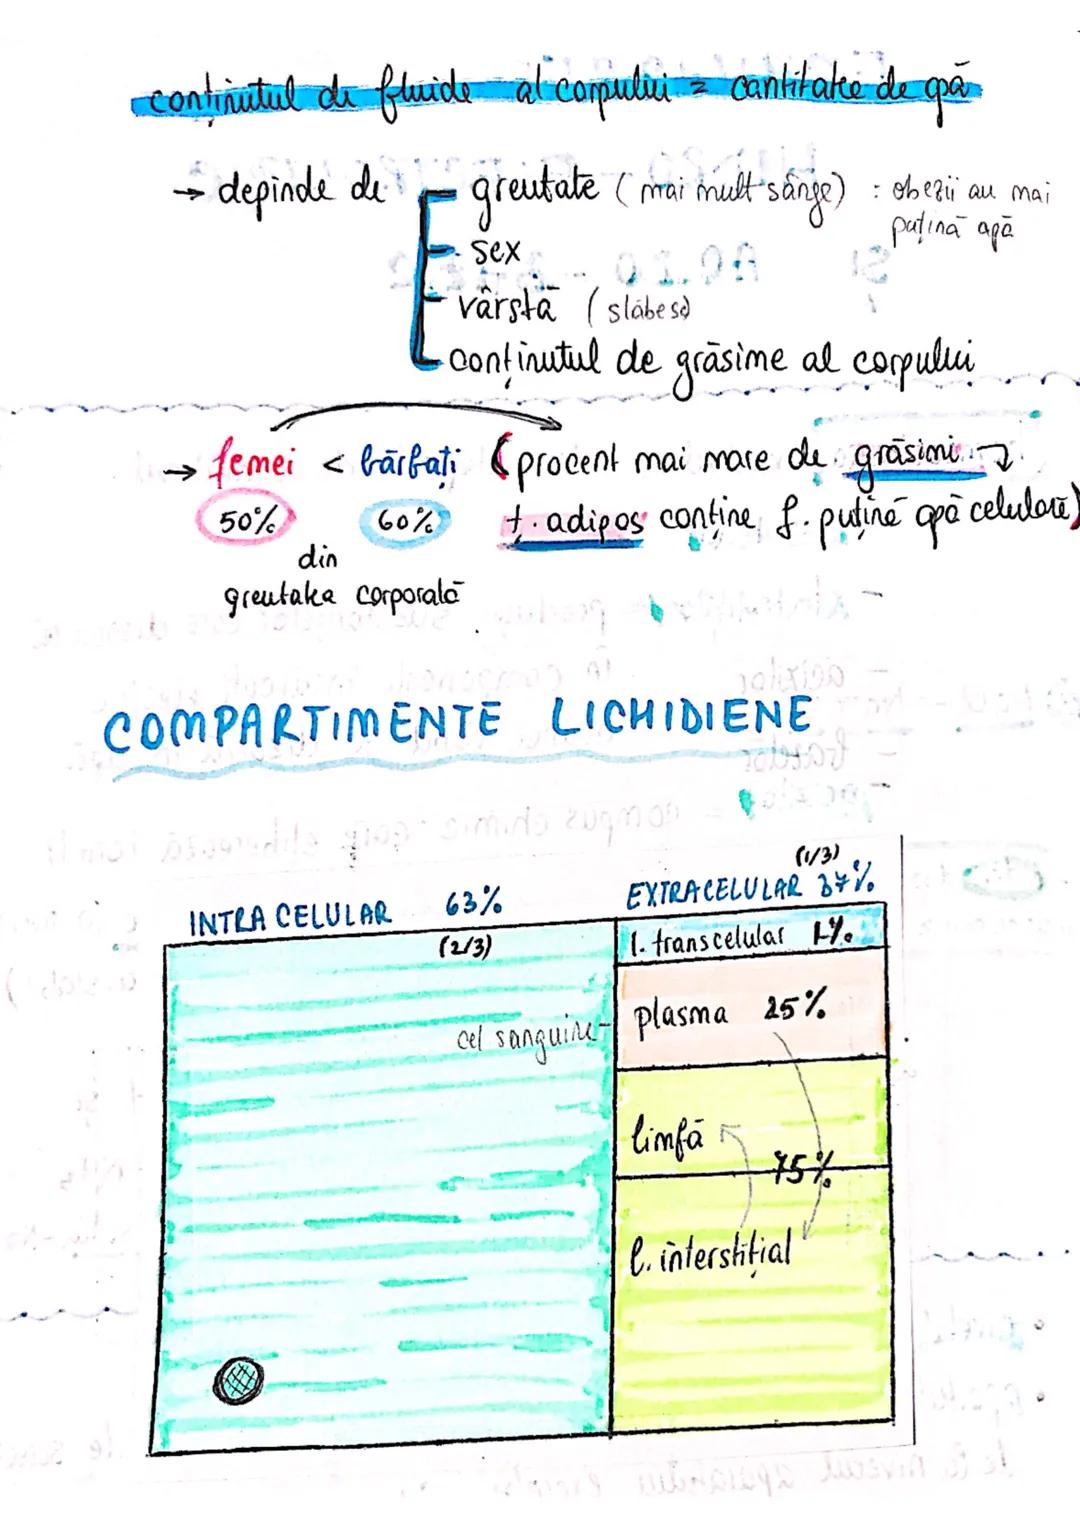 conținutul de fluide al corpului = cantitatea de apă
→ depinde de - greutate (mai mult sânge) : obezii au mai
puțină apă
- sex
- vârstă (slăbesc)
- conținutul de grăsime al corpului
→ femei < bărbați (procent mai mare de grăsimi
50% 60% ț. adipos conține f. puțină apă celulară)
din
greutatea corporală
COMPARTIMENTE LICHIDIENE
(1/3)
INTRACELULAR 63% EXTRACELULAR 37%
(2/3) l. transcelular 1%
cel sanguine plasma 25%
limfă
75%
l. interstițial